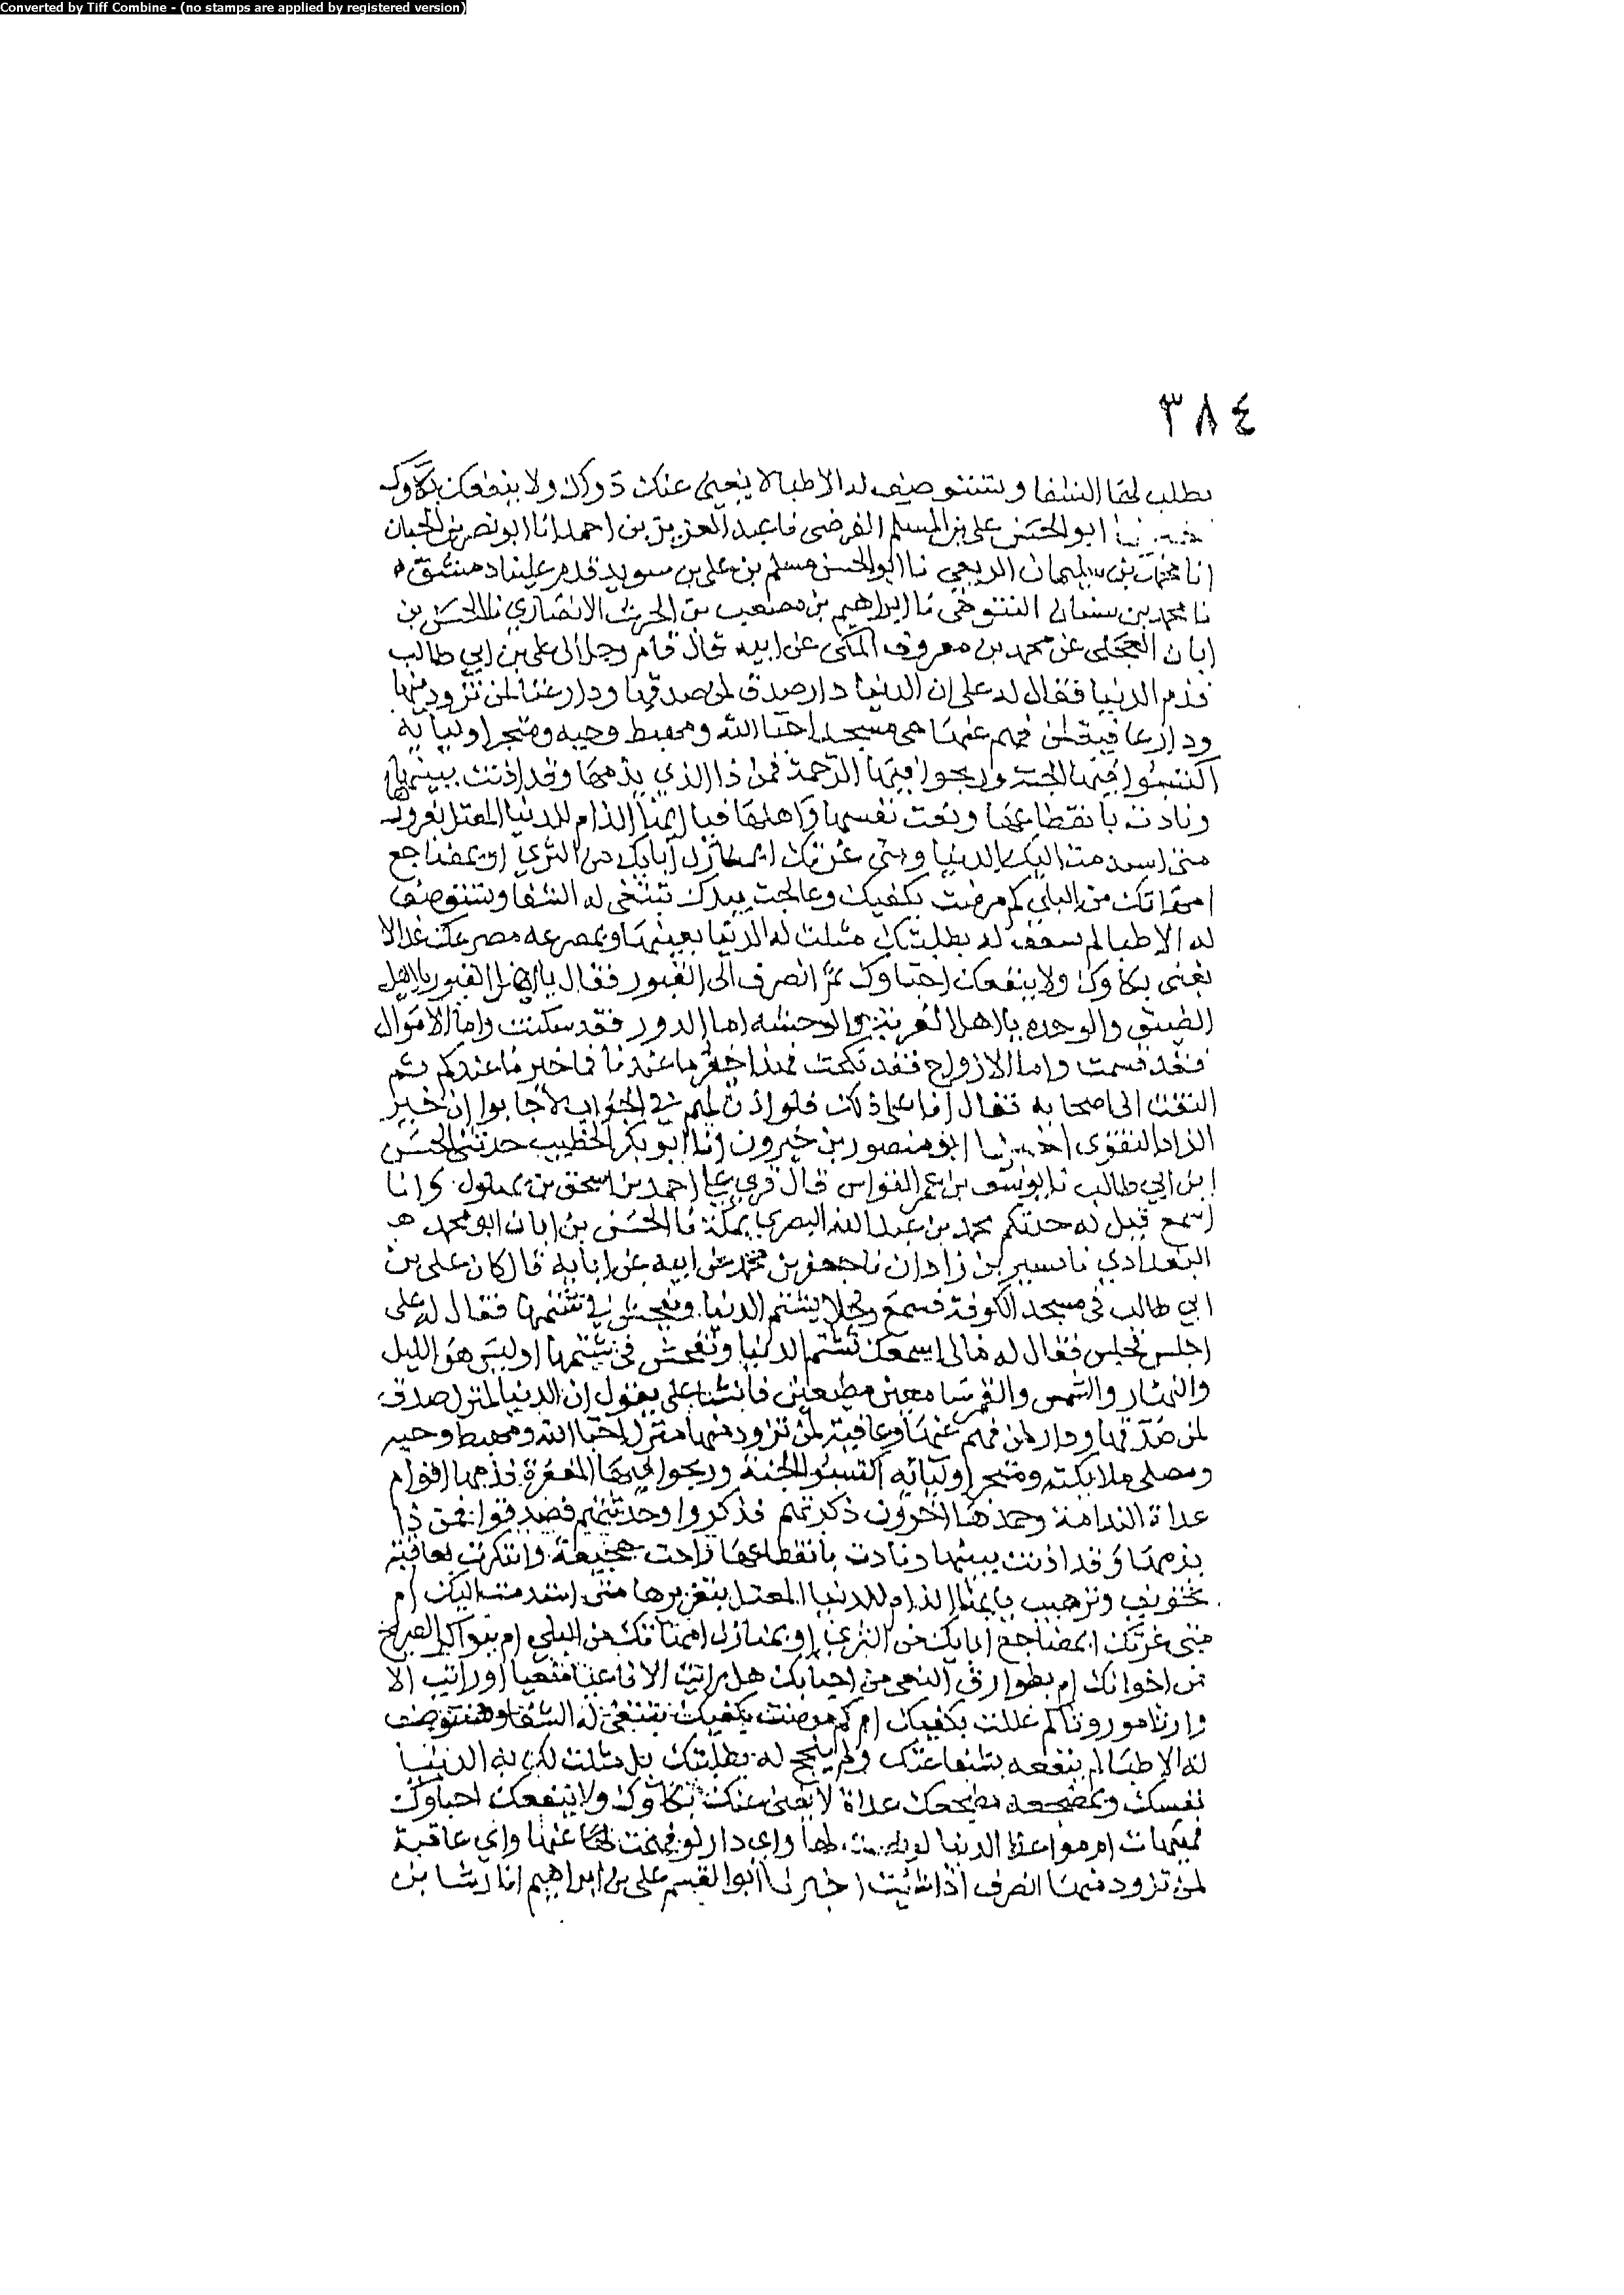 Converted by Tiff Combine - (no stamps are applied by registered version)
٣٨٤
يطلب لها الشفا وتستوصف له الاطبا لا يغني عنك دواك ولا ينفعك بكاوك
ابو الحسن علي بن المسلم الفرضي نا عبد العزيز بن احمد انا ابو نصر بن الجبان
انا محمد بن سليمان الربعي نا ابو الحسن مسلم بن علي بن سويد قدم علينا دمشق
نا محمد بن سنان التنوخي نا ابراهيم بن مصعب بن الحرث الانصاري نا الحسن بن
ابان العجلي عن محمد بن معروف المكي عن ابيه قال قام رجل الى علي بن ابي طالب
فذم الدنيا فقال له علي ان الدنيا دار صدق لمن صدقها ودار غنا لمن تزود منها
ودار عافية لمن فهم عنها هي مسجد احبا الله ومهبط وحيه ومتجر اوليايه
اكتسبوا فيها الجنة وربحوا فيها الرحمة فمن ذا الذي يذمها وقد اذنت ببينها
ونادت بانقطاعها ونعت نفسها واهلها فيا ايها الذام للدنيا المعتل بغرور
متى استدمت اليك الدنيا ومتى غرتك ابمنازل ابايك من الثرى او بمضاجع
امهاتك من البلى كم مرضت بكفيك وعالجت بيدك تبتغي له الشفا وتستوصف
له الاطبا لم تسعف له بطلبتك مثلت له الدنيا بعينها وبمصرعه مصرعك غدا لا
يغني بكاوك ولا ينفعك احباوك ثم انصرف الى القبور فقال يا اهل القبور يا اهل
الضيق والوحده يا اهل الغربة والوحشه اما الدور فقد سكنت واما الاموال
فقد قسمت واما الازواج فقد نكحت فهذا خبر ما عندنا فما خبر ما عندكم ثم
التفت الى اصحابه فقال اما على ذلك فلو اذن لهم في الجواب لاجابوا ان خير
الزاد التقوى اخبرنا ابو منصور بن خيرون انا ابو بكر الخطيب حدثني الحسن
ابن ابي طالب نا يوسف بن عمر القواس قال قري على احمد بن اسحق بن بهلول وانا
اسمع قيل له حدثكم محمد بن عبد الله البصري بمكة نا الحسن بن ابان ابو محمد
البغدادي نا بشير بن زاذان نا جعفر بن محمد عن ابيه عن ابايه قال كان علي بن
ابي طالب في مسجد الكوفة فسمع رجلا يشتم الدنيا ويفحش في شتمها فقال له علي
اجلس فجلس فقال له مالي اسمعك تشتم الدنيا وتفحش في شتمها اوليس هو الليل
والنهار والشمس والقمر سامعين مطيعين فانشا علي يقول ان الدنيا لمنزل صدق
لمن صدقها ودار لمن فهم عنها وعافية لمن تزود منها منزل احبا الله ومهبط وحيه
ومصلى ملايكته ومتجر اوليائه اكتسبوا الجنة وربحوا فيها المغفرة فذمها اقوام
غداة الندامة وحمدها اخرون ذكرتهم فذكروا وحدثتهم فصدقوا فمن ذا
يذمها وقد اذنت ببينها ونادت بانقطاعها راحت بفجيعة وابتكرت بعافية
بتخويف وترهيب يا ايها الذام للدنيا المعتل بتغريرها متى استدمت اليك ام
متى غرتك ابمضاجع ابايك من الثرى او بمنازل امهاتك من البلى ام ببواكير الصريخ
من اخوانك ام بطوارق النعي من احبابك هل رايت الا ناعيا منعيا او رايت الا
وارثا موروثا كم عللت بكفيك ام كم مرضت بكفيك تبتغي له الشفا وتستوصف
له الاطبا لم ينفعه بشفاعتك ولم ينجح له بطلبتك بل مثلت لك به الدنيا
نفسك وبمضجعه مضجعك غداة لا يغني عنك بكاوك ولا ينفعك احباوك
فهيهات ام مواعظ الدنيا لو لها واي دار لو فهمت عنها واي عاقبة
لمن تزود منها انصرف اذا شئت اخبرنا ابو القسم علي بن ابراهيم انا رشا بن